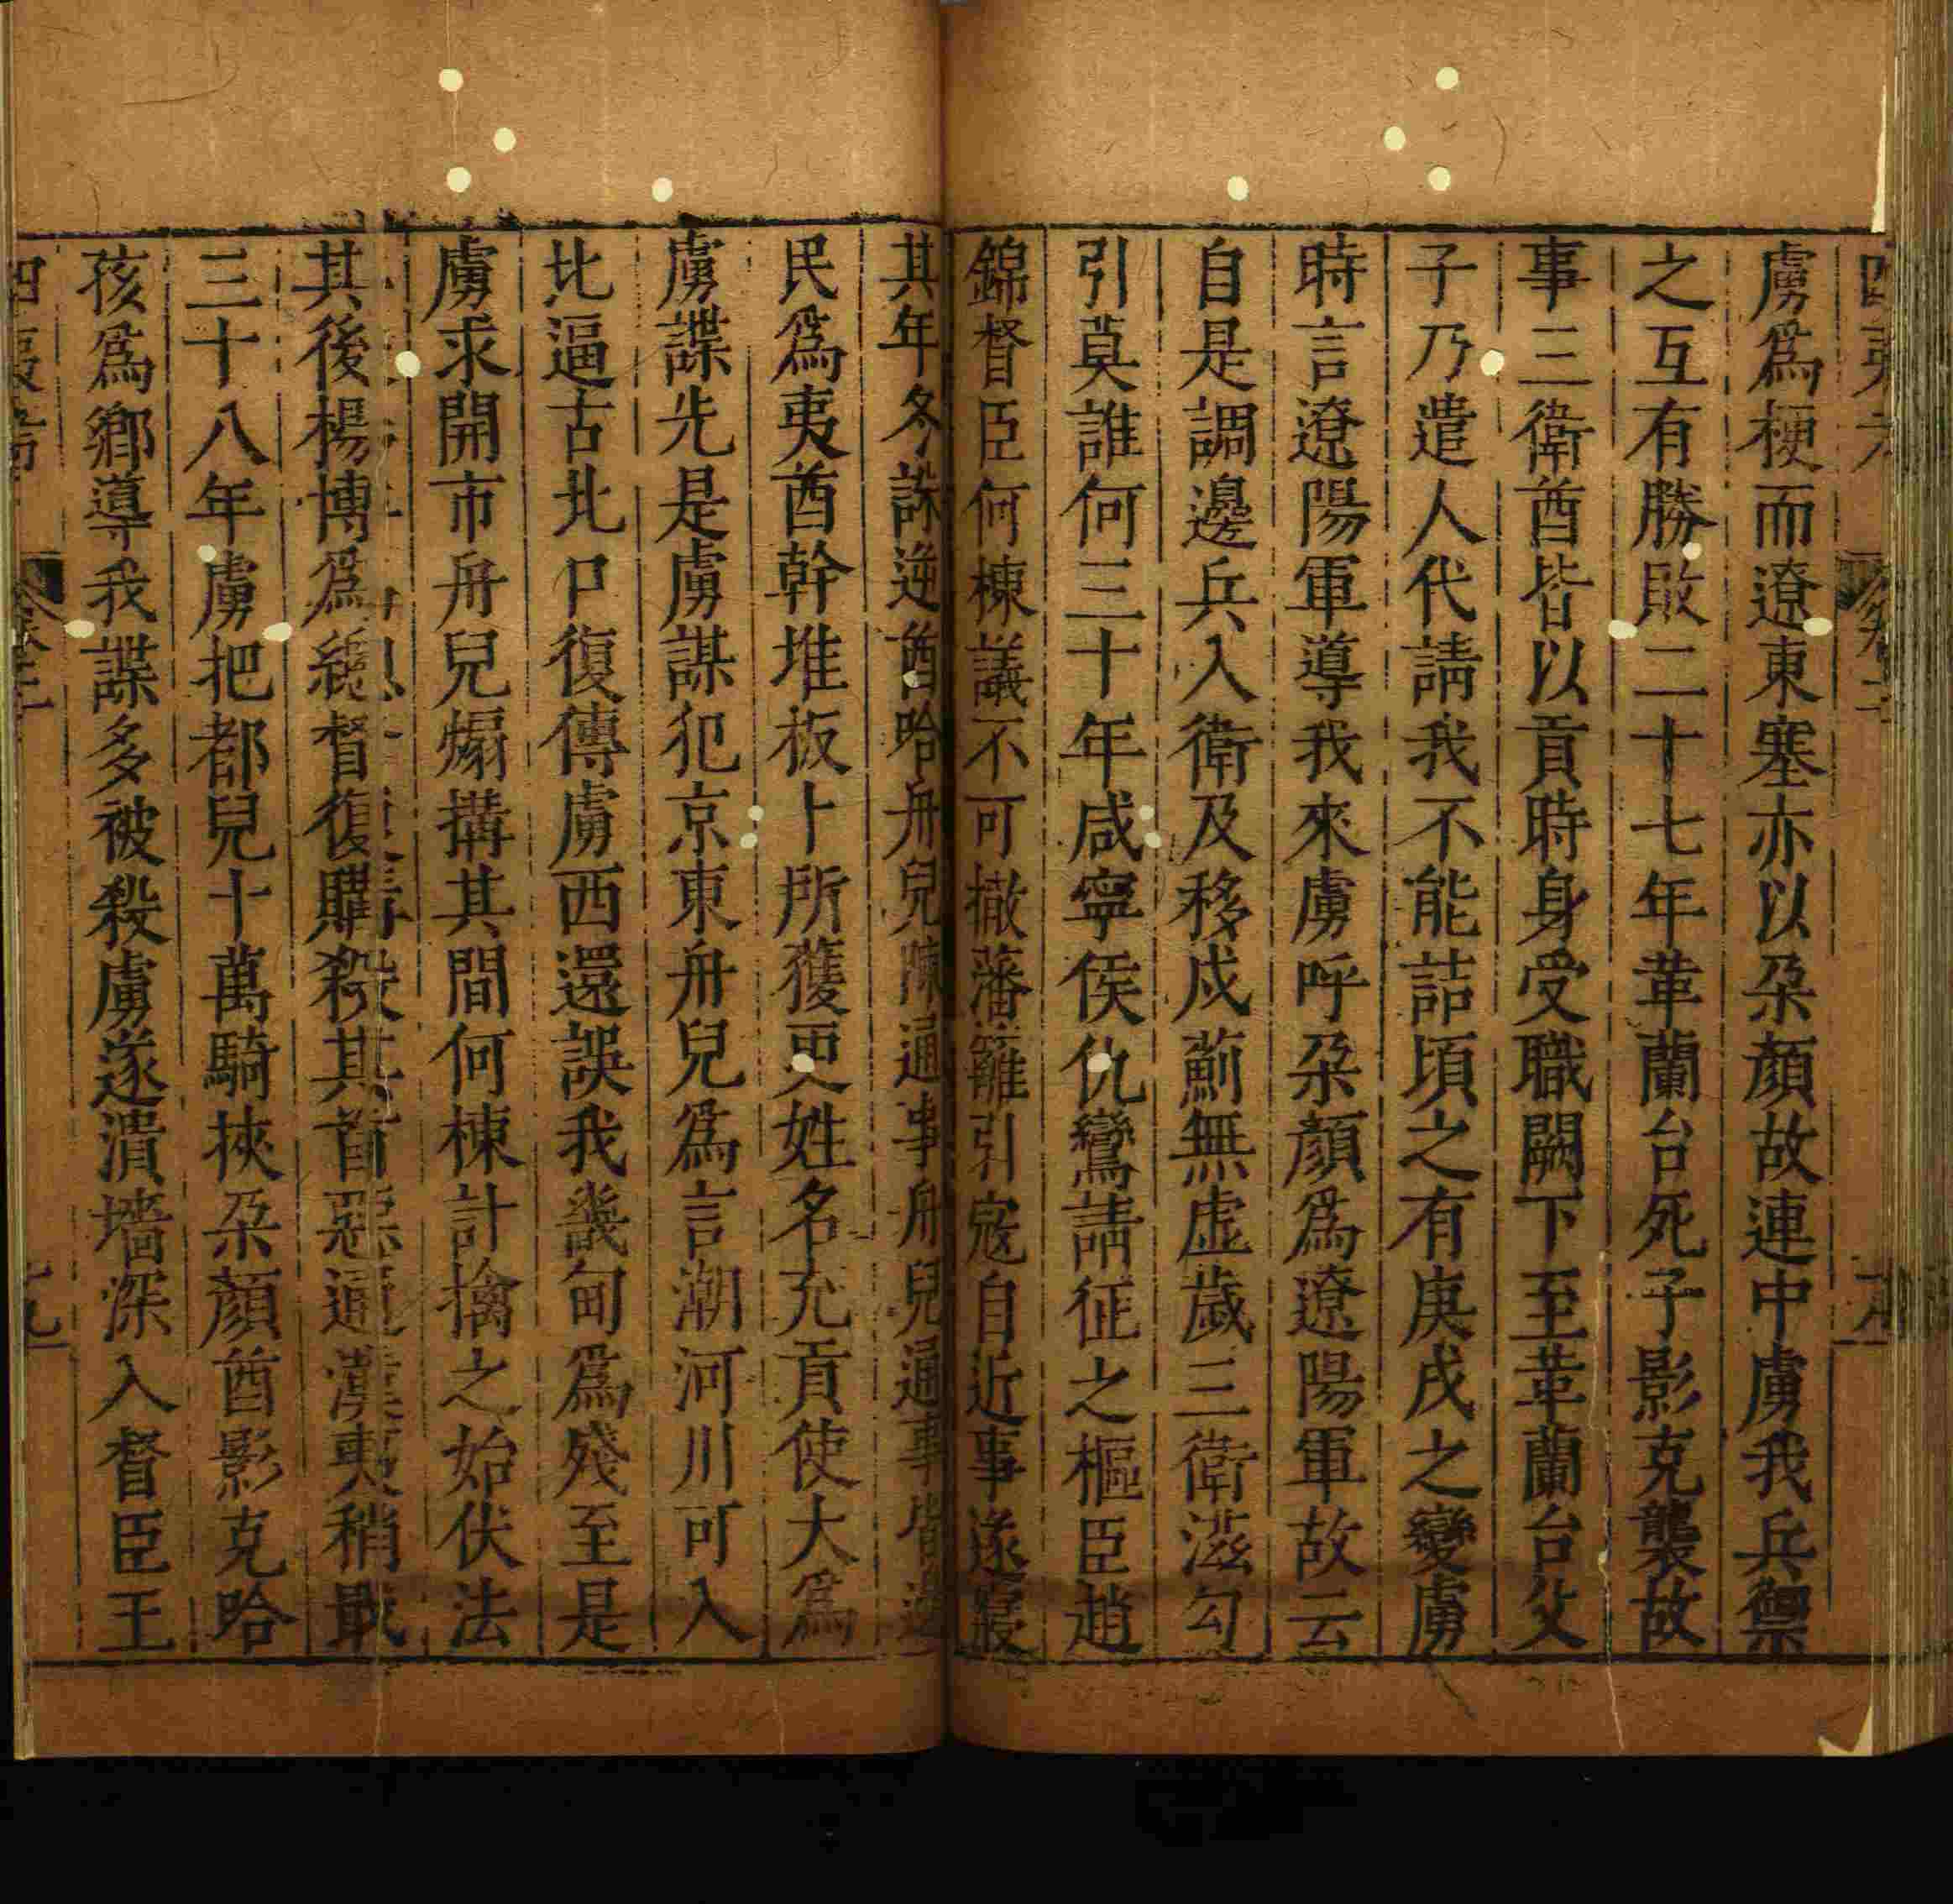 虜爲梗而遼東塞亦以朶顏故連中虜我兵禦
之互有勝敗二十七年革蘭台死子影克襲故
事三衛酋皆以貢時身受職闕下至革蘭台父
子乃遣人代請我不能詰頃之有庚戌之變虜
時言遼陽軍導我來虜呼朶顏爲遼陽軍故云
自是調邊兵入衛及移戍薊無虛歲三衛滋勾
引莫誰何三十年咸寧侯仇鸞請征之樞臣趙
錦督臣何棟議不可撤藩籬引寇自近事遂寢
其年冬誅逆酋哈舟兒陳通事舟兒通事皆邊
民爲夷酋幹堆板卜所獲更姓名充貢使大爲
虜諜先是虜謀犯京東舟兒爲言潮河川可入
比逼古北口復傳虜西還誤我畿甸爲殘至是
虜求開市舟兒煽搆其間何棟計擒之始伏法
其後楊博爲總督復購殺其首惡通漢夷稍戢
三十八年虜把都兒十萬騎挾朶顏酋影克哈
孩爲鄉導我諜多被殺虜遂潰墻深入督臣王